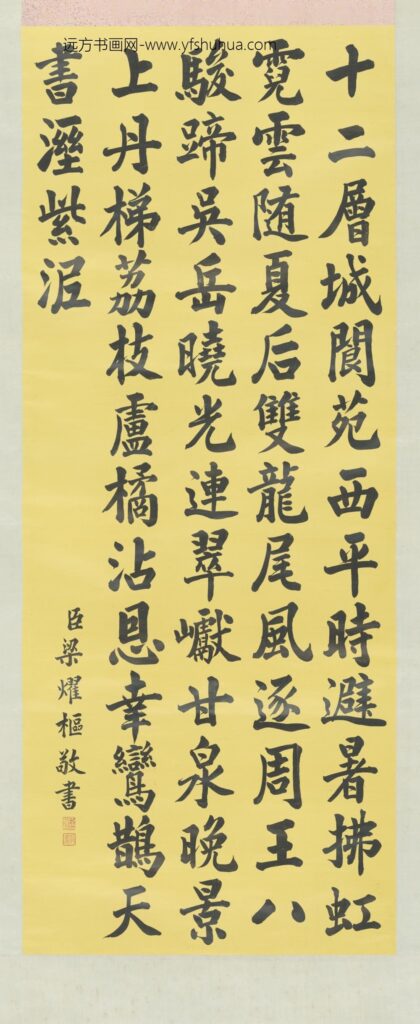 远方书画网-www.yfshuhua.com
十二層城閬苑西平時避暑拂虹
霓雲随夏后雙龍尾風逐周王八
駿蹄吳岳曉光連翠巘甘泉晚景
上丹梯荔枝盧橘沾恩幸鸞鵲天
書溼紫泥
臣梁燿樞敬書